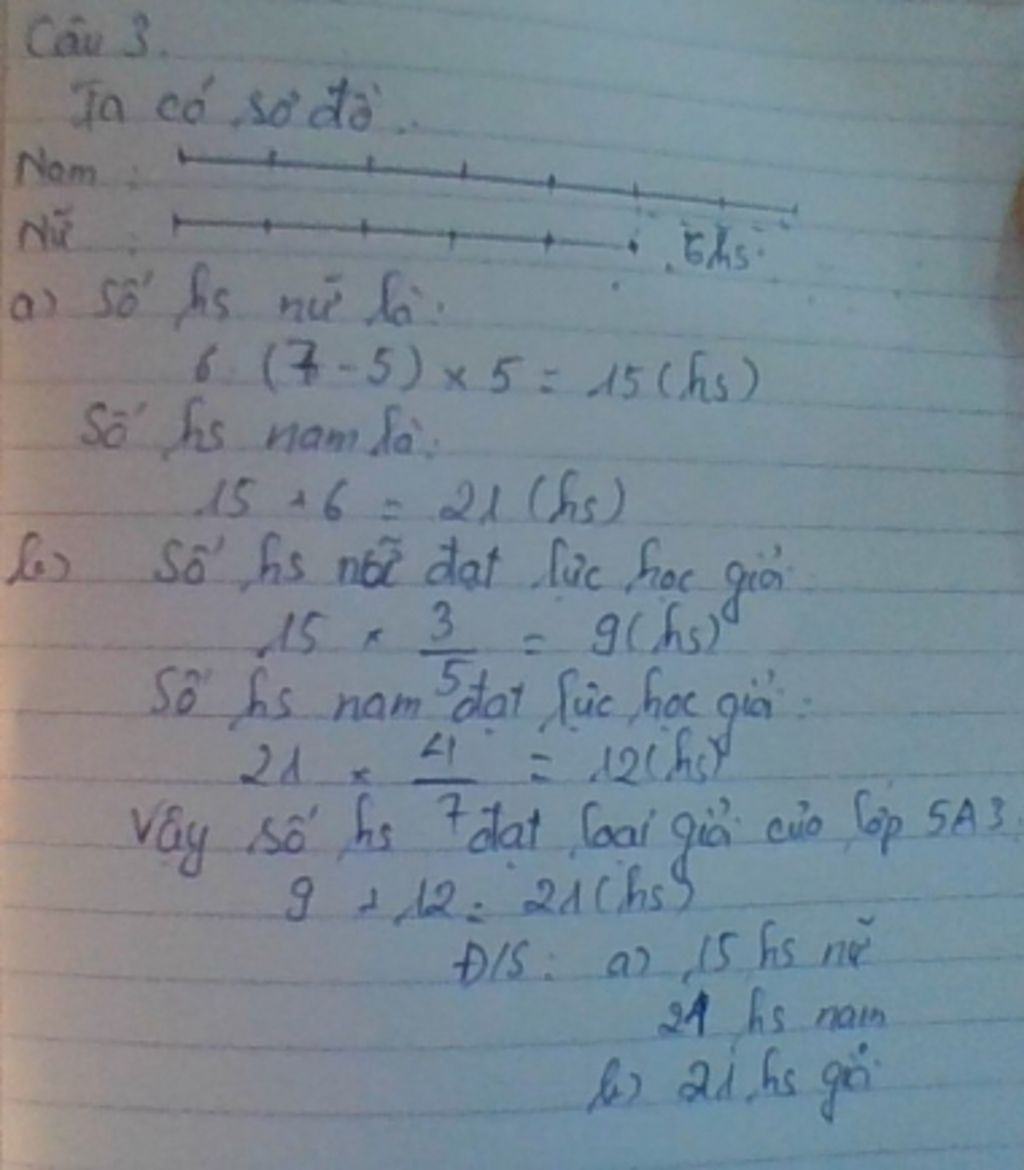 Câu 3.
Ta có sơ đồ:
Nam :
Nữ : 6hs
a) Số hs nữ là:
6 : (7 - 5) × 5 = 15 (hs)
Số hs nam là:
15 + 6 = 21 (hs)
b) Số hs nữ đạt lực học giỏi:
15 × 3/5 = 9 (hs)
Số hs nam đạt lực học giỏi:
21 × 4/7 = 12 (hs)
Vậy số hs đạt loại giỏi của lớp 5A3
9 + 12 = 21 (hs)
Đ/S: a) 15 hs nữ
21 hs nam
b) 21 hs giỏi